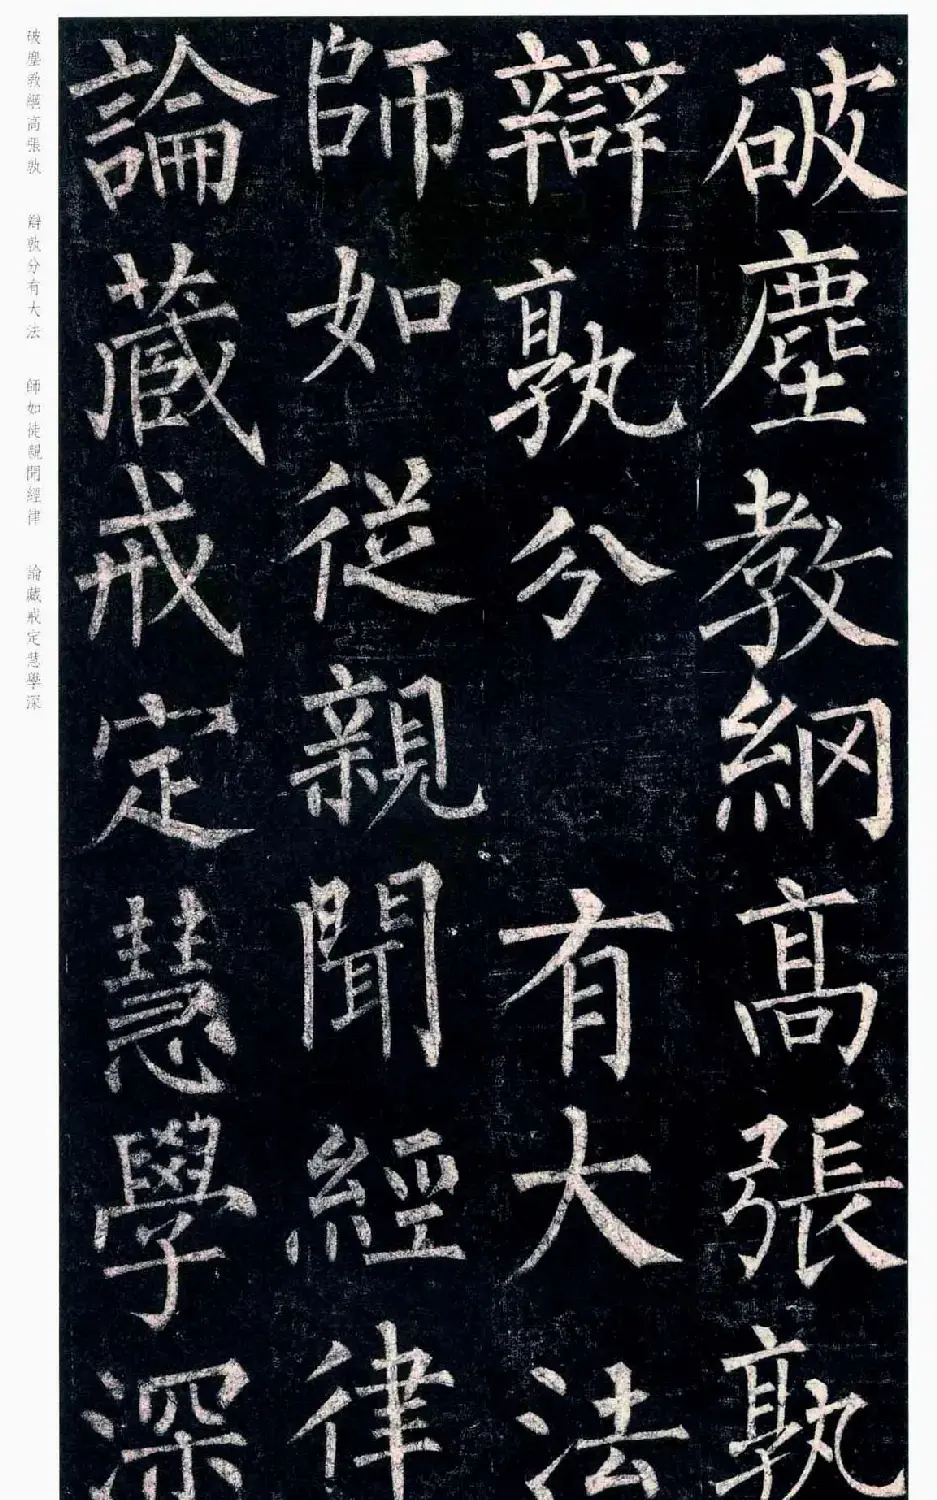 破塵教網高張孰
辯孰分有大法
師如從親聞經律
論藏戒定慧學深
破塵教網高張孰 辯孰分有大法 師如從親聞經律 論藏戒定慧學深